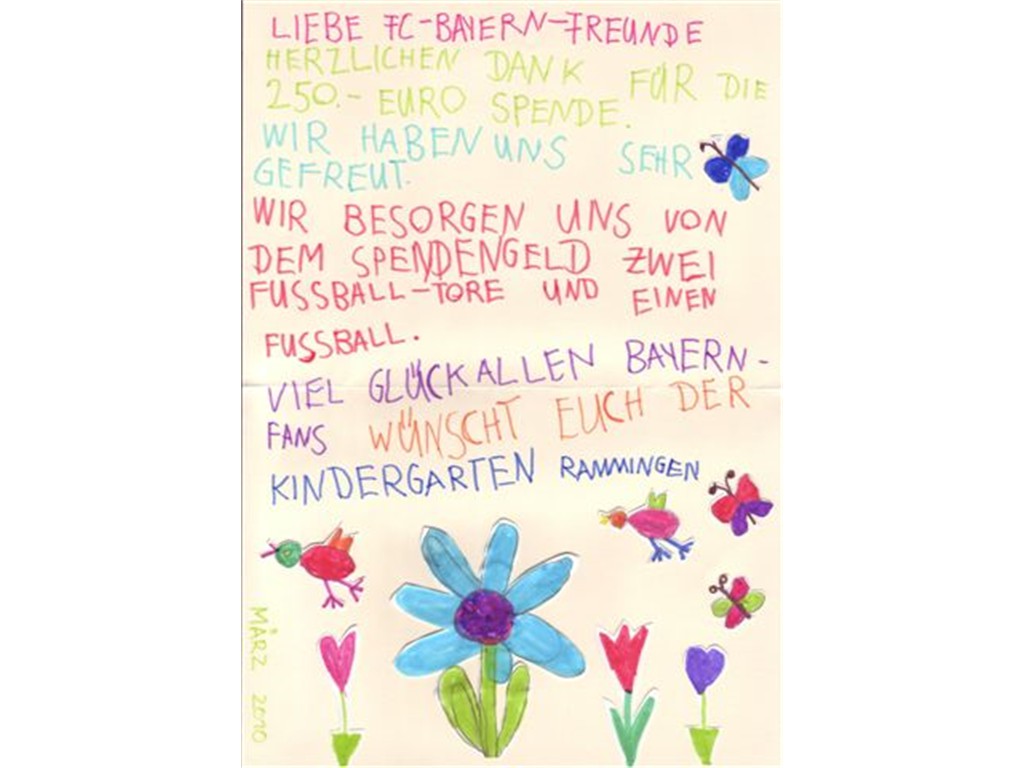 LIEBE FC-BAYERN-FREUNDE
HERZLICHEN DANK FÜR DIE
250.- EURO SPENDE.
WIR HABEN UNS SEHR
GEFREUT.
WIR BESORGEN UNS VON
DEM SPENDENGELD ZWEI
FUSSBALL-TORE UND EINEN
FUSSBALL.
VIEL GLÜCK ALLEN BAYERN-
FANS WÜNSCHT EUCH DER
KINDERGARTEN RAMMINGEN
MÄRZ 2010